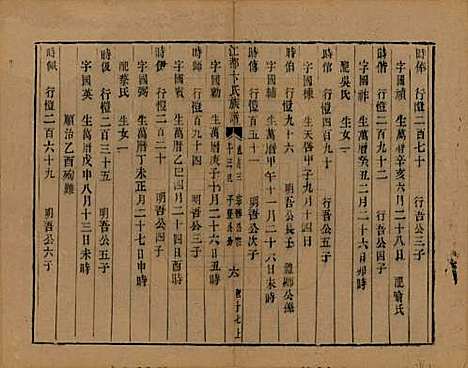 時俸 行億二百七十 行吾公三子
字國禎 生萬曆辛亥六月二十八日 配喻氏
時倌 行億二百九十二 行吾公四子
字國祚 生萬曆癸丑二月二十六日卯時
配吳氏 生女一
字國棟 生天啓甲子九月十四日
時伯 行億九十六 明吾公長子
生萬曆甲午十一月二十六日未時
時傳 行億百五十一 明吾公次子
江都卞氏族譜
六
字國勳 生萬曆庚子十月二十二日丑時
時師 行億百九十四 明吾公三子
字國賓 生萬曆乙巳四月二十四日酉時
時伊 行億二百 明吾公四子
字國 生萬曆丁未正月二十七日申時
配蔡氏 生女一
時 行億二百三十五 明吾公五子
字國英 生萬曆戊申八月十三日未時
順治乙酉殉難
時佩 行億二百六十九 明吾公六子